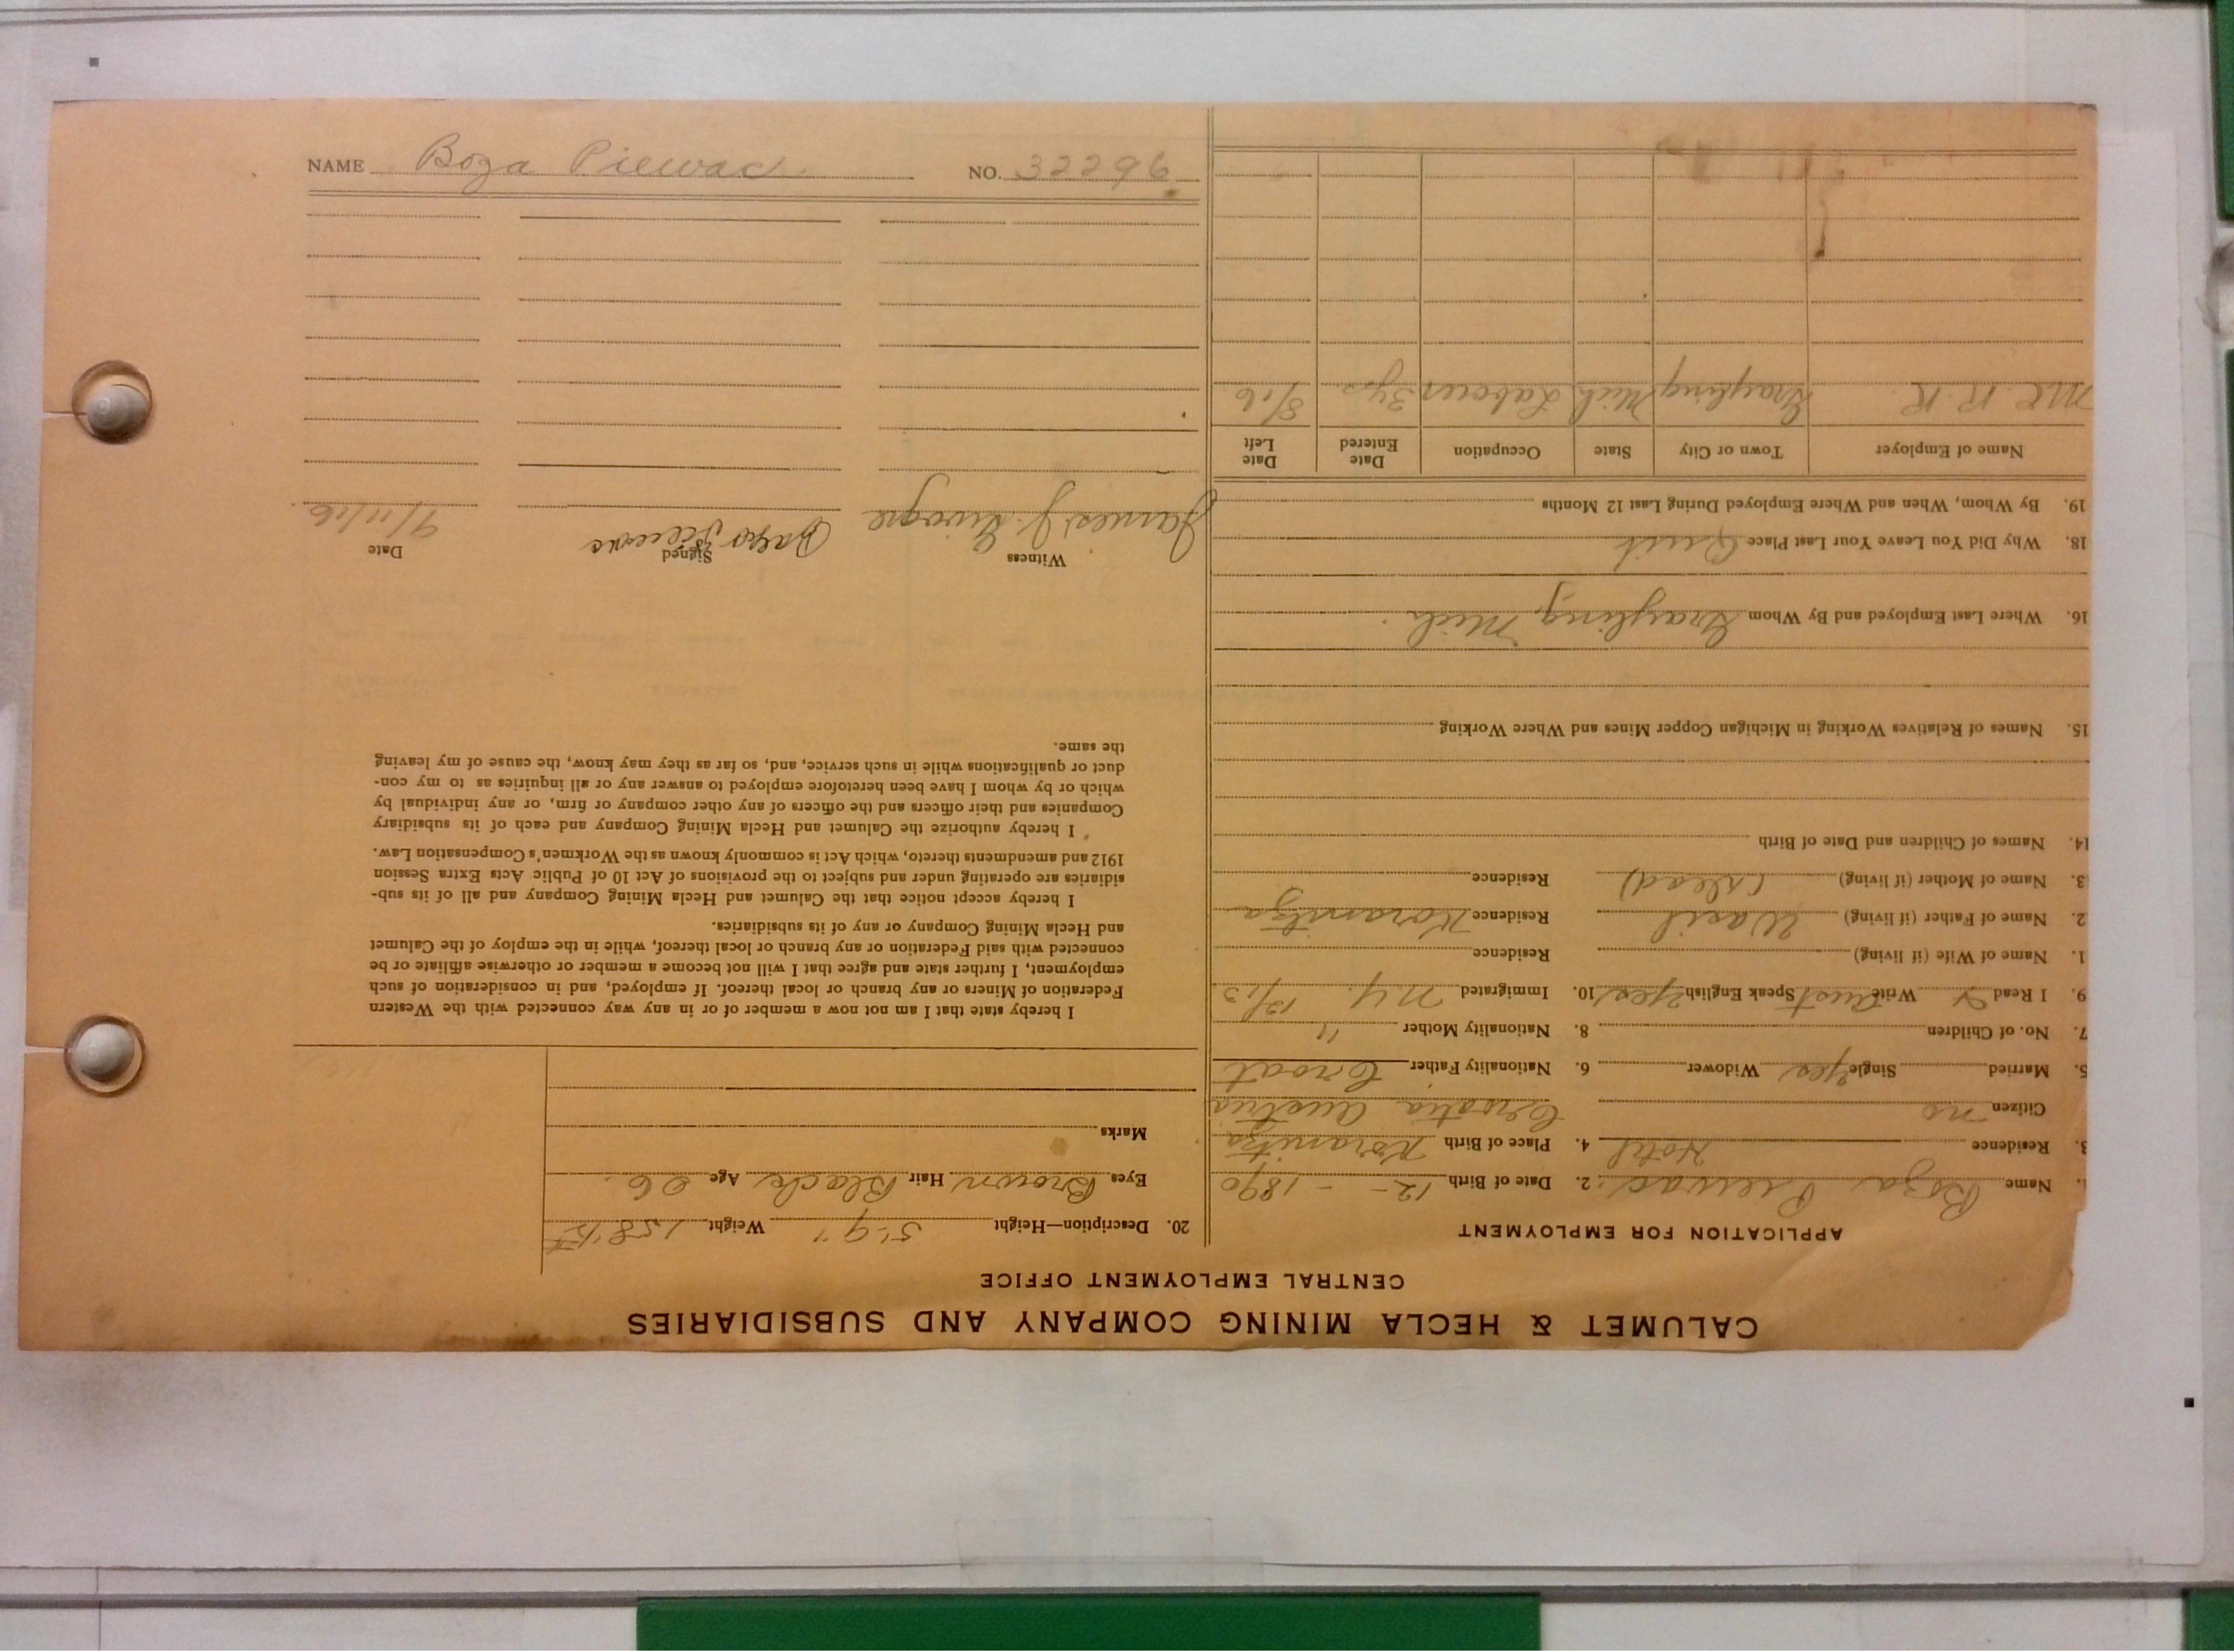 NAME Boza Pilewac NO. 32296
CALUMET & HECLA MINING COMPANY AND SUBSIDIARIES
CENTRAL EMPLOYMENT OFFICE
APPLICATION FOR EMPLOYMENT
Name Boza 2. Date of Birth 12 - - 1890
3. Residence Hotel 4. Place of Birth Koranitza
Citizen no Croatia Austria
5. Married Single yes Widower 6. Nationality Father Croat
7. No. of Children 8. Nationality Mother "
9. I Read Write Aust Speak English yes 10. Immigrated N.Y. 12/13
1. Name of Wife (if living) Residence
2. Name of Father (if living) Wasil Residence Koranitza
3. Name of Mother (if living) (dead) Residence
14. Names of Children and Date of Birth
15. Names of Relatives Working in Michigan Copper Mines and Where Working
16. Where Last Employed and By Whom Grayling Mich.
18. Why Did You Leave Your Last Place Quit
19. By Whom, When and Where Employed During Last 12 Months
Name of Employer Town or City State Occupation Date Entered Date Left
M.C. R.R. Grayling Mich Laborer 3 yrs. 8/16
20. Description—Height 5'-9" Weight 158
Eyes Brown Hair Black Age 26
Marks
I hereby state that I am not now a member of or in any way connected with the Western
Federation of Miners or any branch or local thereof. If employed, and in consideration of such
employment, I further state and agree that I will not become a member or otherwise affiliate or be
connected with said Federation or any branch or local thereof, while in the employ of the Calumet
and Hecla Mining Company or any of its subsidiaries.
I hereby accept notice that the Calumet and Hecla Mining Company and all of its sub-
sidiaries are operating under and subject to the provisions of Act 10 of Public Acts Extra Session
1912 and amendments thereto, which Act is commonly known as the Workmen's Compensation Law.
I hereby authorize the Calumet and Hecla Mining Company and each of its subsidiary
Companies and their officers and the officers of any other company or firm, or any individual by
which or by whom I have been heretofore employed to answer any or all inquiries as to my con-
duct or qualifications while in such service, and, so far as they may know, the cause of my leaving
the same.
Witness Signed Date
James J. 9/11/16